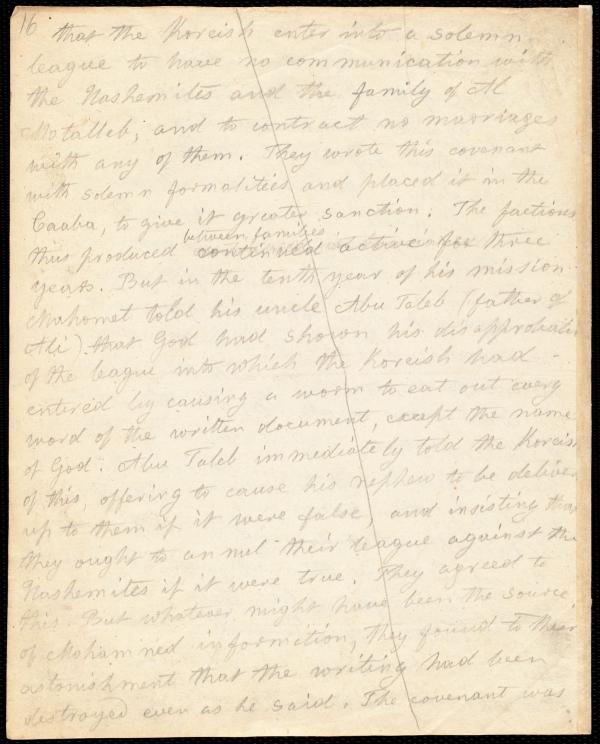 16 that the Koreish enter into a solemn
league to have no communication with
the Hashemites and the family of Al
Motalleb; and to contract no marriages
with any of them. They wrote this covenant
with solemn formalities and placed it in the
Caaba, to give it greater sanction. The factions
between families
thus produced continued active for three
years. But in the tenth year of his mission
Mahomet told his uncle Abu Taleb (father of
Ali) that God had shown his disapprobatio
of the league into which the Koreish had
entered by causing a worm to eat out every
word of the written document, except the name
of God. Abu Taleb immediately told the Koreish
of this, offering to cause his nephew to be deliver
up to them if it were false, and insisting that
they ought to annul their league against the
Hashemites if it were true. They agreed to
this. But whatever might have been the source
of Mohammed information, they found to their
astonishment that the writing had been
destroyed even as he said. The covenant was